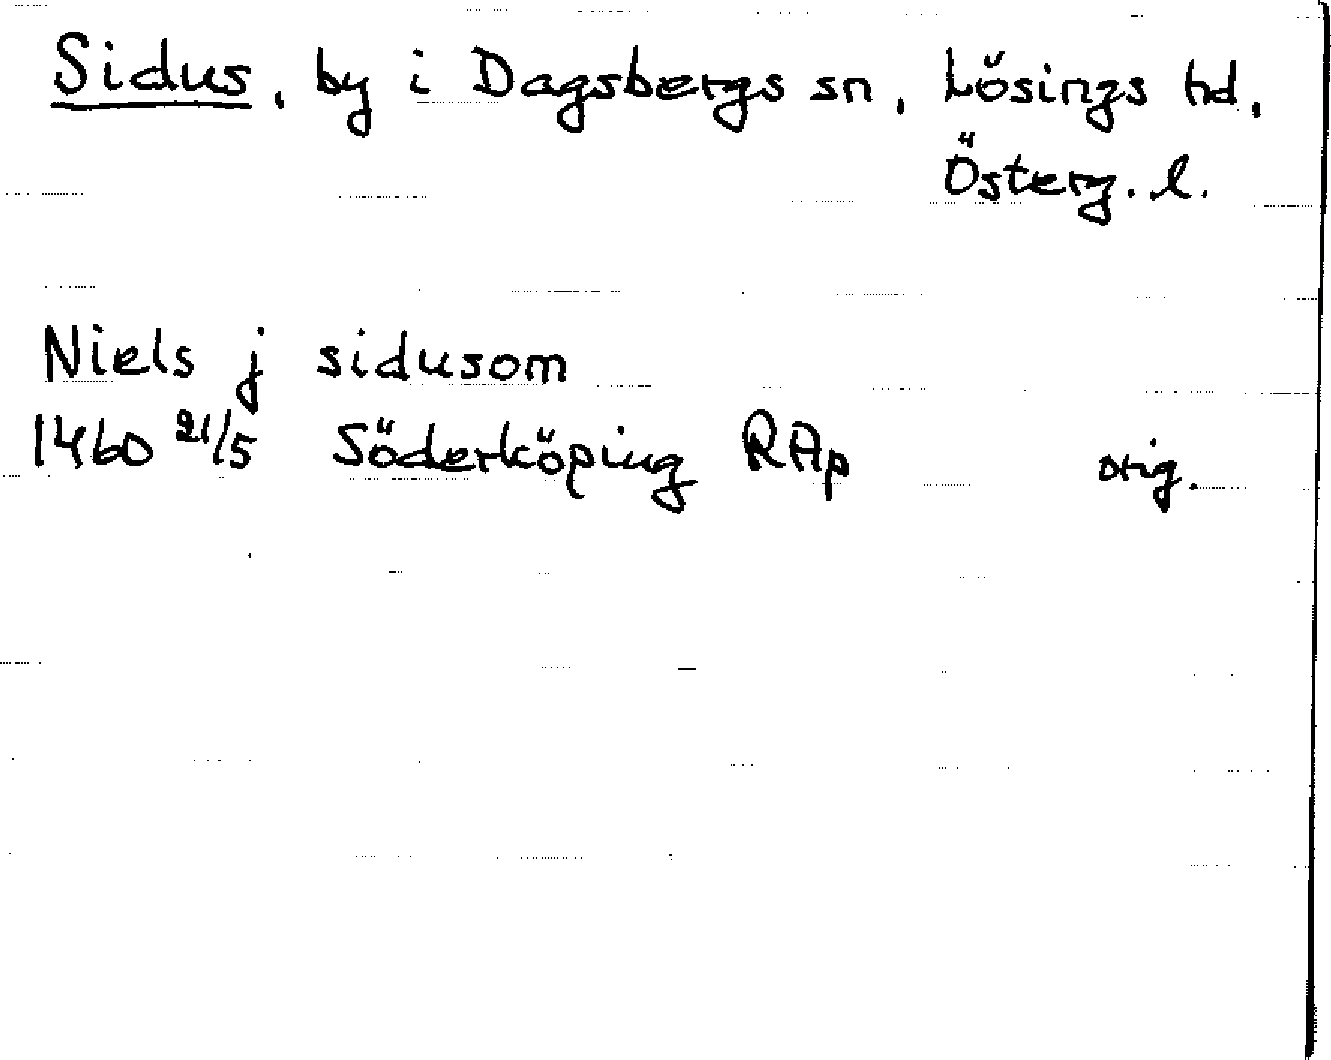 Sidus, by i Dagsbergs sn, Lösings hd,
Österg. l.
Niels j sidusom
1460 21/5 Söderköping RAp orig.